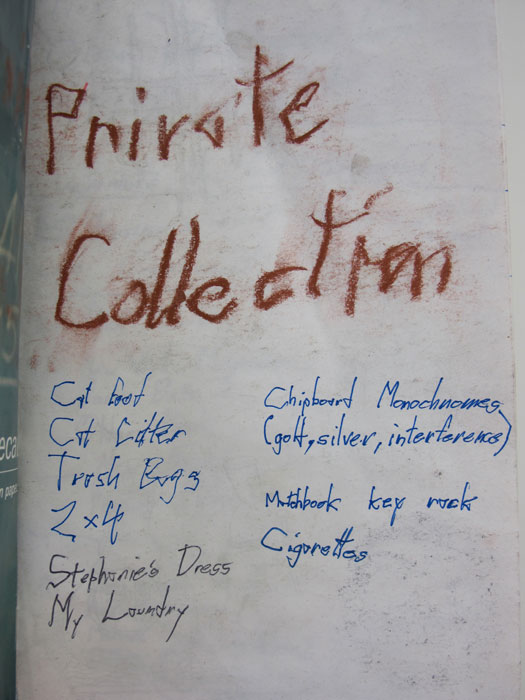 Private
Collection
Cat food
Cat Litter
Trash Bags
2x4
Stephanie's Dress
My Laundry
Chipboard Monochromes
(gold, silver, interference)
Matchbook key rack
Cigarettes